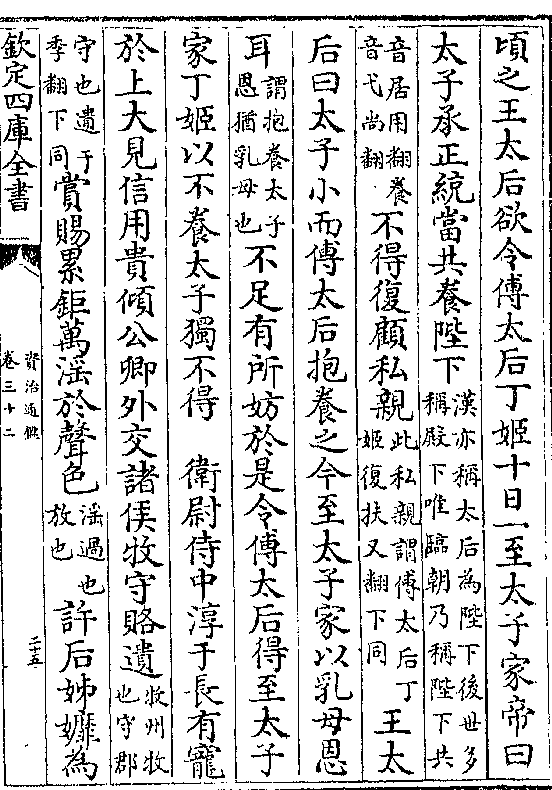 頃之王太后欲令傅太后丁姬十日一至太子家帝曰
太子承正統當共養陛下漢亦稱太后為陛下後世多稱殿下唯臨朝乃稱陛下共
音居用翻養音弋尚翻不得復顧私親此私親謂傅太后丁姬復扶又翻下同王太
后曰太子小而傅太后抱養之今至太子家以乳母恩
耳謂抱養太子恩猶乳母也不足有所妨於是令傅太后得至太子
家丁姬以不養太子獨不得　衛尉侍中淳于長有寵
於上大見信用貴傾公卿外交諸侯牧守賂遺牧州牧也守郡
守也遺于季翻下同賞賜累鉅萬滛於聲色滛過也放也許后姊孊為
欽定四庫全書
資治通鑑
卷三十二
二十五